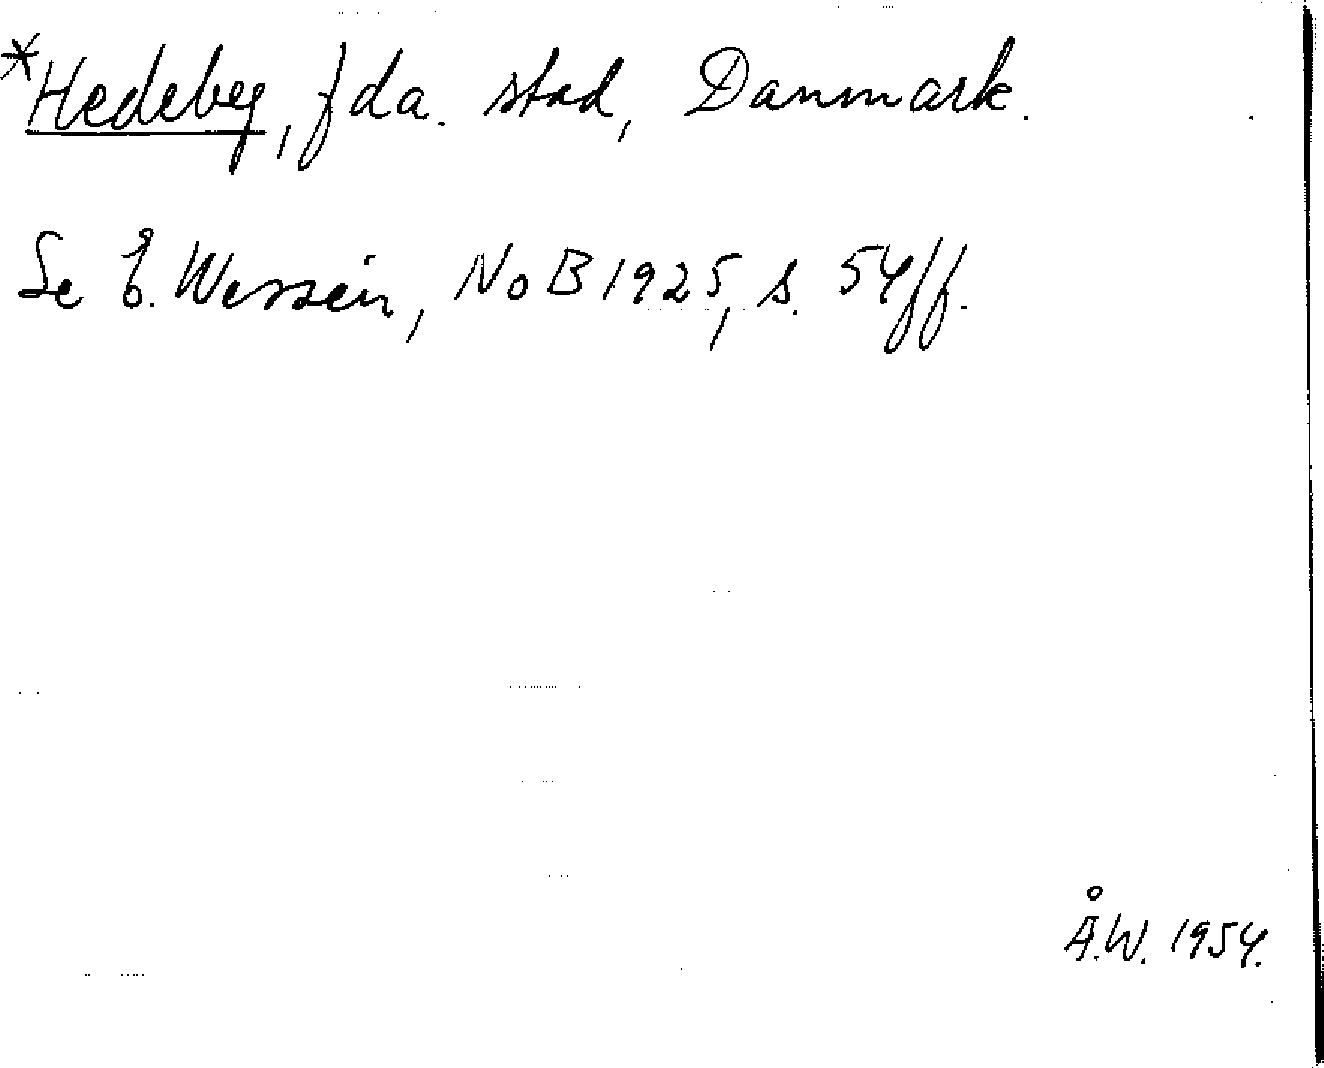 *Hedeby, fda. stad, Danmark.
Se E. Wessén, NoB 1925, s. 54ff.
Å.W. 1954.